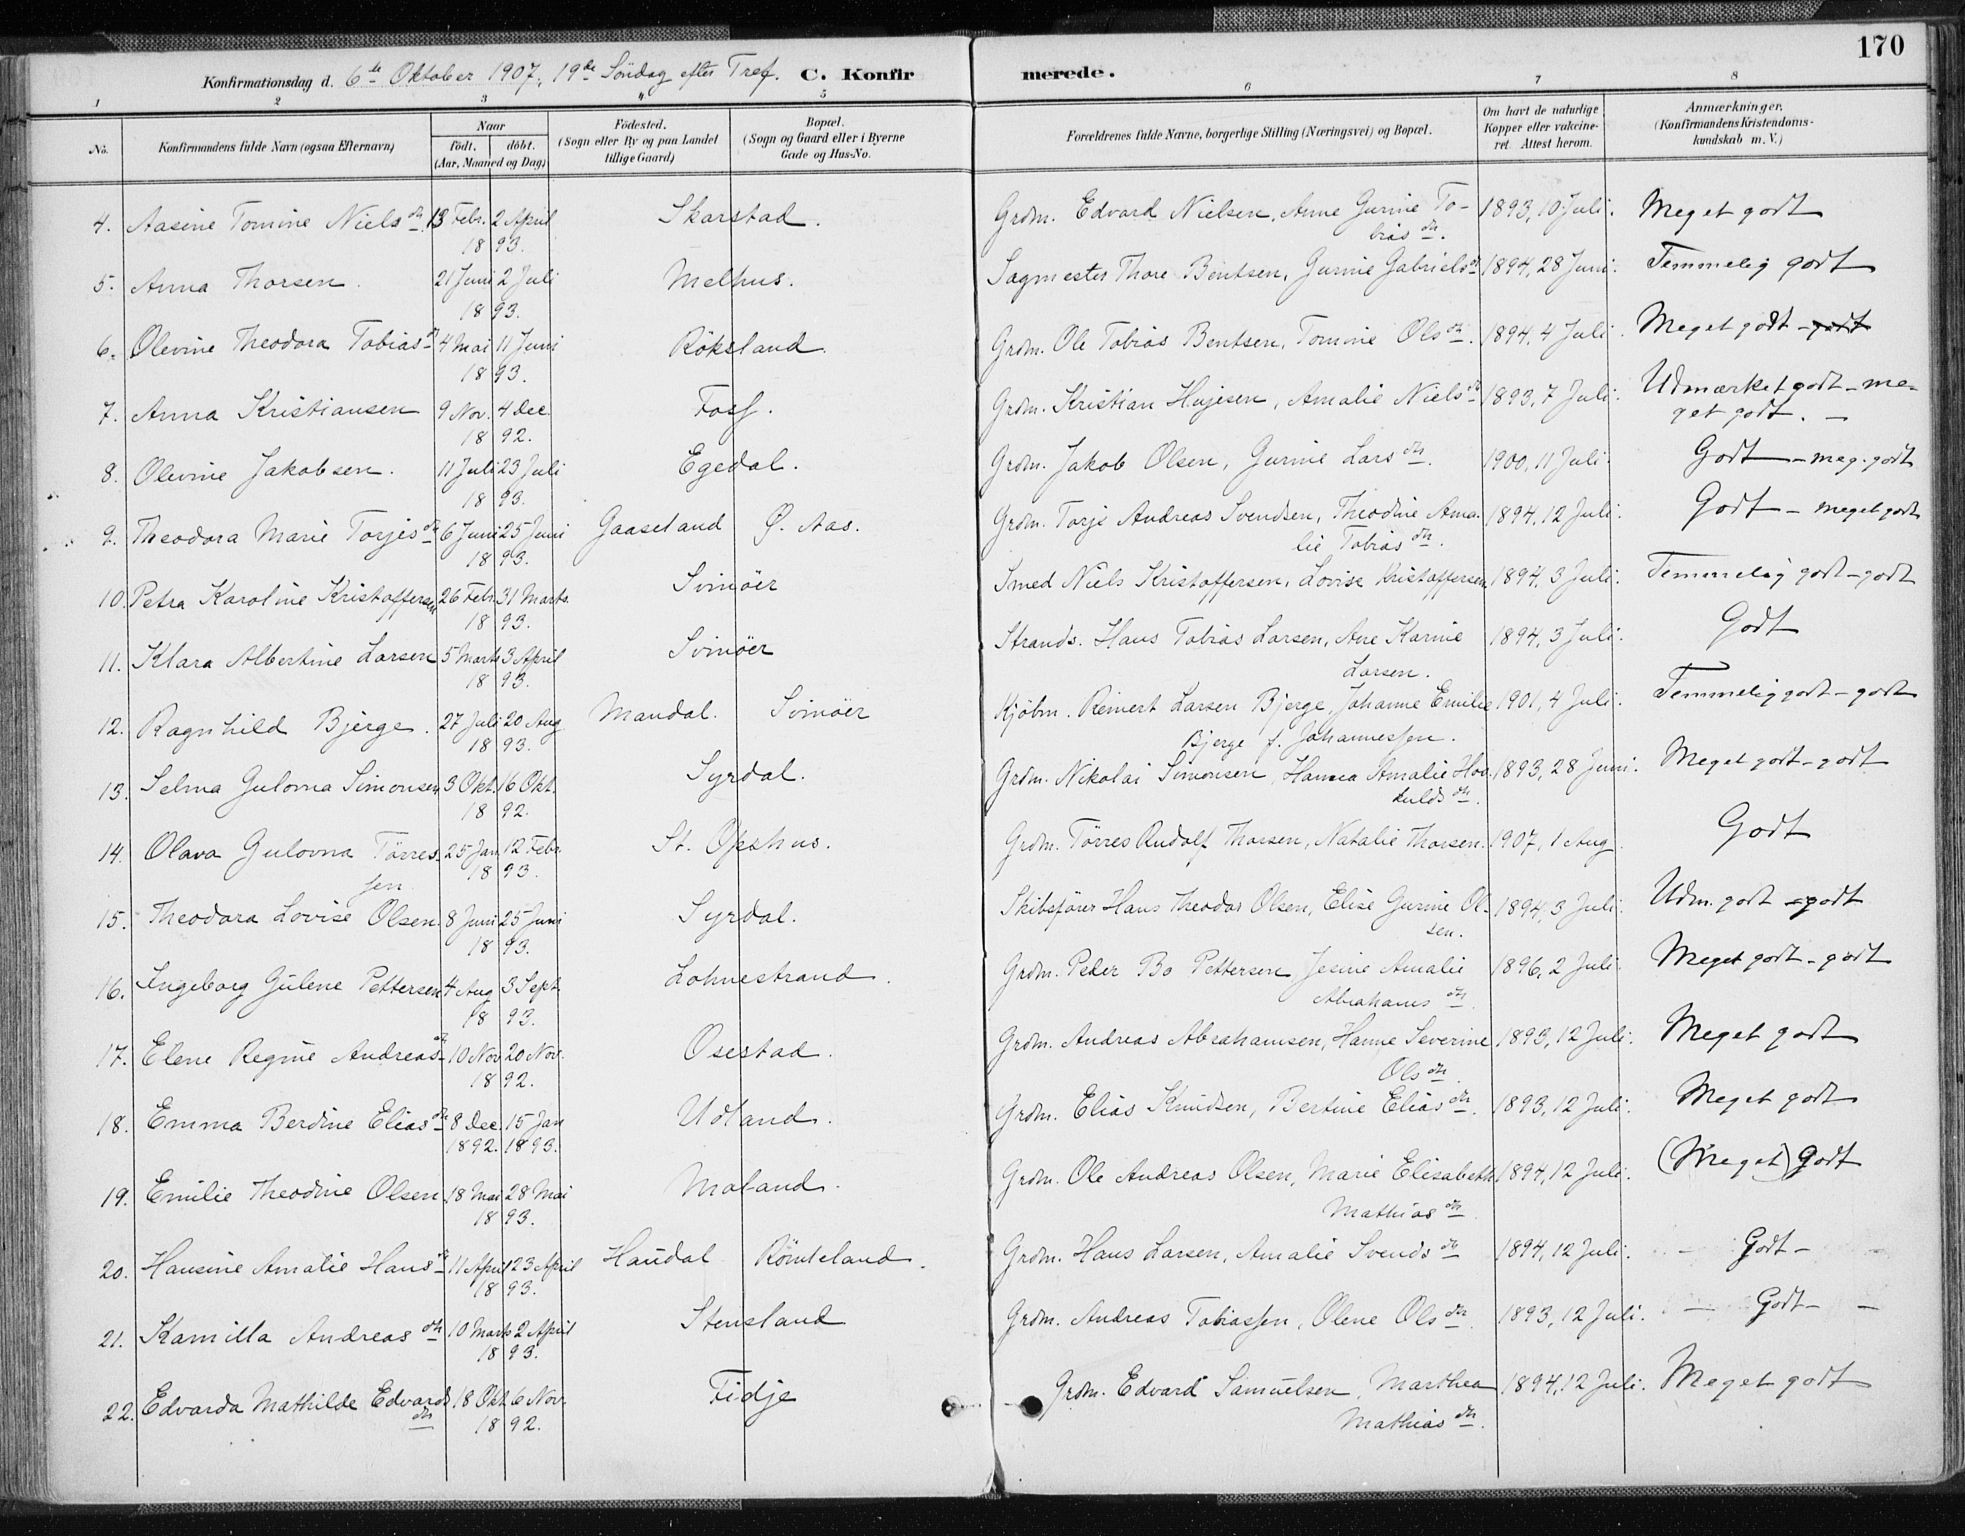 170
Konfirmationsdag d. 6te Oktober 1907, 19de Söndag efter Tref. C. Konfirmerede.
1 2 3 4 5 6 7 8
No. Konfirmandens fulde Navn (ogsaa Efternavn) Naar födt. döbt. (Aar, Maaned og Dag) Födested. (Sogn eller By og paa Landet tillige Gaard) Bopæl. (Sogn og Gaard eller i Byerne Gade og Hus-No. Forældrenes fulde Navne, borgerlige Stilling (Næringsvei) og Bopæl. Om havt de naturlige Kopper eller vakcineret. Attest herom. Anmærkninger. (Konfirmandens Kristendomskundskab m. V.)
4. Aasine Tomine Nielsdtr 13 Febr. 2 April Skarstad. Grdm. Edvard Nielsen, Anne Gurine To- 1893, 10 Juli. Meget godt
1893. biasdtr.
5. Anna Thorsen. 21 Juni 2 Juli Melhus. Sagmester Thore Bentsen, Gurine Gabrielsdtr 1894, 28 Juni. Temmelig godt
1893.
6. Olevine Theodora Tobiasdtr 4 Mai 11 Juni Röksland. Grdm. Ole Tobias Bentsen, Tomine Olsdtr. 1894, 4 Juli. Meget godt - godt
1893.
7. Anna Kristiansen 9 Nov. 4 Dec. Foss. Grdm. Kristian Hujesen, Amalie Nielsdtr 1893, 7 Juli. Udmærket godt - me-
1892. get godt. -
8. Olevine Jakobsen. 11 Juli 23 Juli Egedal. Grdm. Jakob Olsen, Gurine Larsdtr. 1900, 11 Juli. Godt - meg. godt
1893.
9. Theodora Marie Torjesdtr 6 Juni 25 Juni Gaaseland Ø. Aas. Grdm. Torje Andreas Svendsen, Theodine Ama- 1894, 12 Juli. Godt - meget godt
1893. lie Tobiasdtr.
10. Petra Karoline Kristoffersen 26 Febr. 31 Marts. Svinöer Smed Niels Kristoffersen, Lovise Kristoffersen 1894, 3 Juli. Temmelig godt - godt
1893.
11. Klara Albertine Larsen 5 Marts 3 April Svinöer Strands. Hans Tobias Larsen, Ane Karine 1894, 3 Juli. Godt
1893. Larsen.
12. Ragnhild Bjerge. 27 Juli 20 Aug Mandal. Svinöer Kjöbm. Reinert Larsen Bjerge, Johanne Emilie 1901, 4 Juli. Temmelig godt - godt
1893. Bjerge f. Johannessen.
13. Selma Gulovna Simonsen 3 Okt. 16 Okt. Syrdal. Grdm. Nikolai Simonsen, Hanna Amalie Hov- 1893, 28 Juni. Meget godt - godt
1892. kuldsdtr.
14. Olava Gulovna Törres- 25 Jan. 12 Febr. St. Opshus. Grdm. Törres Rudolf Thorsen, Natalie Thorsen. 1907, 1 Aug. Godt
sen 1893.
15. Theodora Lovise Olsen. 8 Juni 25 Juni Syrdal. Skibsförer Hans Theodor Olsen, Elise Gurine Ol- 1894, 3 Juli. Udm. godt - godt
1893. sen.
16. Ingeborg Gulene Pettersen 4 Aug 3 Sept. Lohnestrand. Grdm. Peder Bo Pettersen Jesine Amalie 1896, 2 Juli. Meget godt - godt
1893. Abrahamsdtr.
17. Elene Regine Andreasdtr 10 Nov 20 Nov. Osestad. Grdm. Andreas Abrahamsen, Hanne Severine 1893, 12 Juli. Meget godt
1892. Olsdtr.
18. Emma Berdine Eliasdtr 8 Dec. 15 Jan Udland. Grdm. Elias Knudsen, Bertine Eliasdtr. 1893, 12 Juli. Meget godt
1892. 1893.
19. Emilie Theodine Olsen. 18 Mai 28 Mai Moland. Grdm. Ole Andreas Olsen, Marie Elisabeth 1894, 12 Juli. (Meget) Godt
1893. Mathiasdtr.
20. Hansine Amalie Hansdtr 11 April 23 April Haudal Römteland. Grdm. Hans Larsen, Amalie Svendsdtr 1894, 12 Juli. - Godt -
1893.
21. Kamilla Andreasdtr 10 Marts 2 April Stensland Grdm. Andreas Tobiassen, Olene Olsdtr. 1893, 12 Juli. - Godt - -
1893.
22. Edvarda Mathilde Edvards 18 Okt 6 Nov. Fidje Grdm. Edvard Samuelsen, Marthea 1894, 12 Juli. Meget godt
dtr 1892. Mathiasdtr.